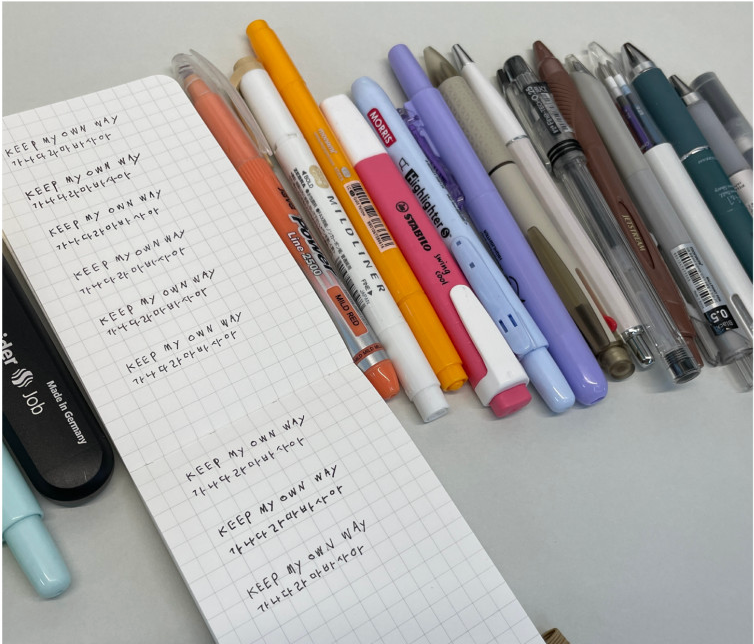 KEEP MY OWN WAY
가나다라마바사아
KEEP MY OWN WAY
가나다라마바사아
KEEP MY OWN WAY
가나다라마바사아
KEEP MY OWN WAY
가나다라마바사아
KEEP MY OWN WAY
가나다라마바사아
KEEP MY OWN WAY
가나다라마바사아
KEEP MY OWN WAY
가나다라마바사아
KEEP MY OWN WAY
가나다라마바사아
KEEP MY OWN WAY
가나다라마바사아
Job
Made in Germany
Power
Line 2500
MILD RED
BOLD
MILDLINER
FINE
STABILO
swing cool
MORRIS
Highlighter
JETSTREAM
0.5